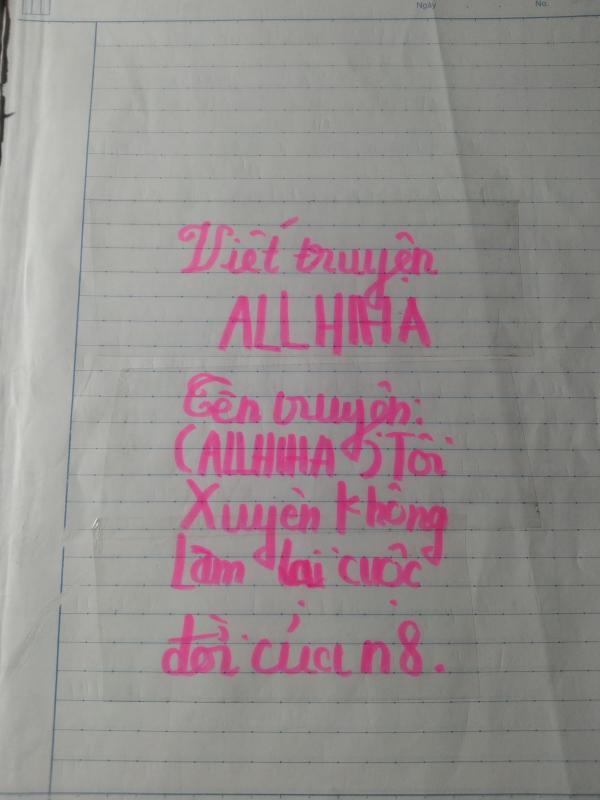 Ngày No.
Viết truyện
ALLHIHA
Tên truyện:
(ALLHIHA) Tôi
Xuyên không
Làm lại cuộc
đời của n8.